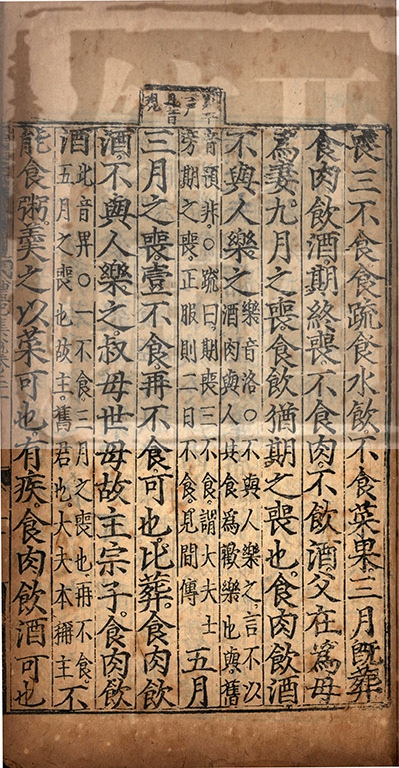 期平声
見音現
喪三不食食疏食水飲不食菜果三月既葬
食肉飲酒期終喪不食肉不飲酒父在爲母
爲妻九月之喪食飲猶期之喪也食肉飲酒
不與人樂之樂音洛○不與人樂之言不以酒肉與人共食爲歡樂也與舊
音預非○疏曰期喪三不食謂大夫士旁期之喪正服則二日不食見間傳五月
三月之喪壹不食再不食可也比葬食肉飲
酒不與人樂之叔母世母故主宗子食肉飲
酒比音畀○一不食三月之喪也再不食五月之喪也故主舊君也大夫本稱主不
能食粥羹之以菜可也有疾食肉飲酒可也